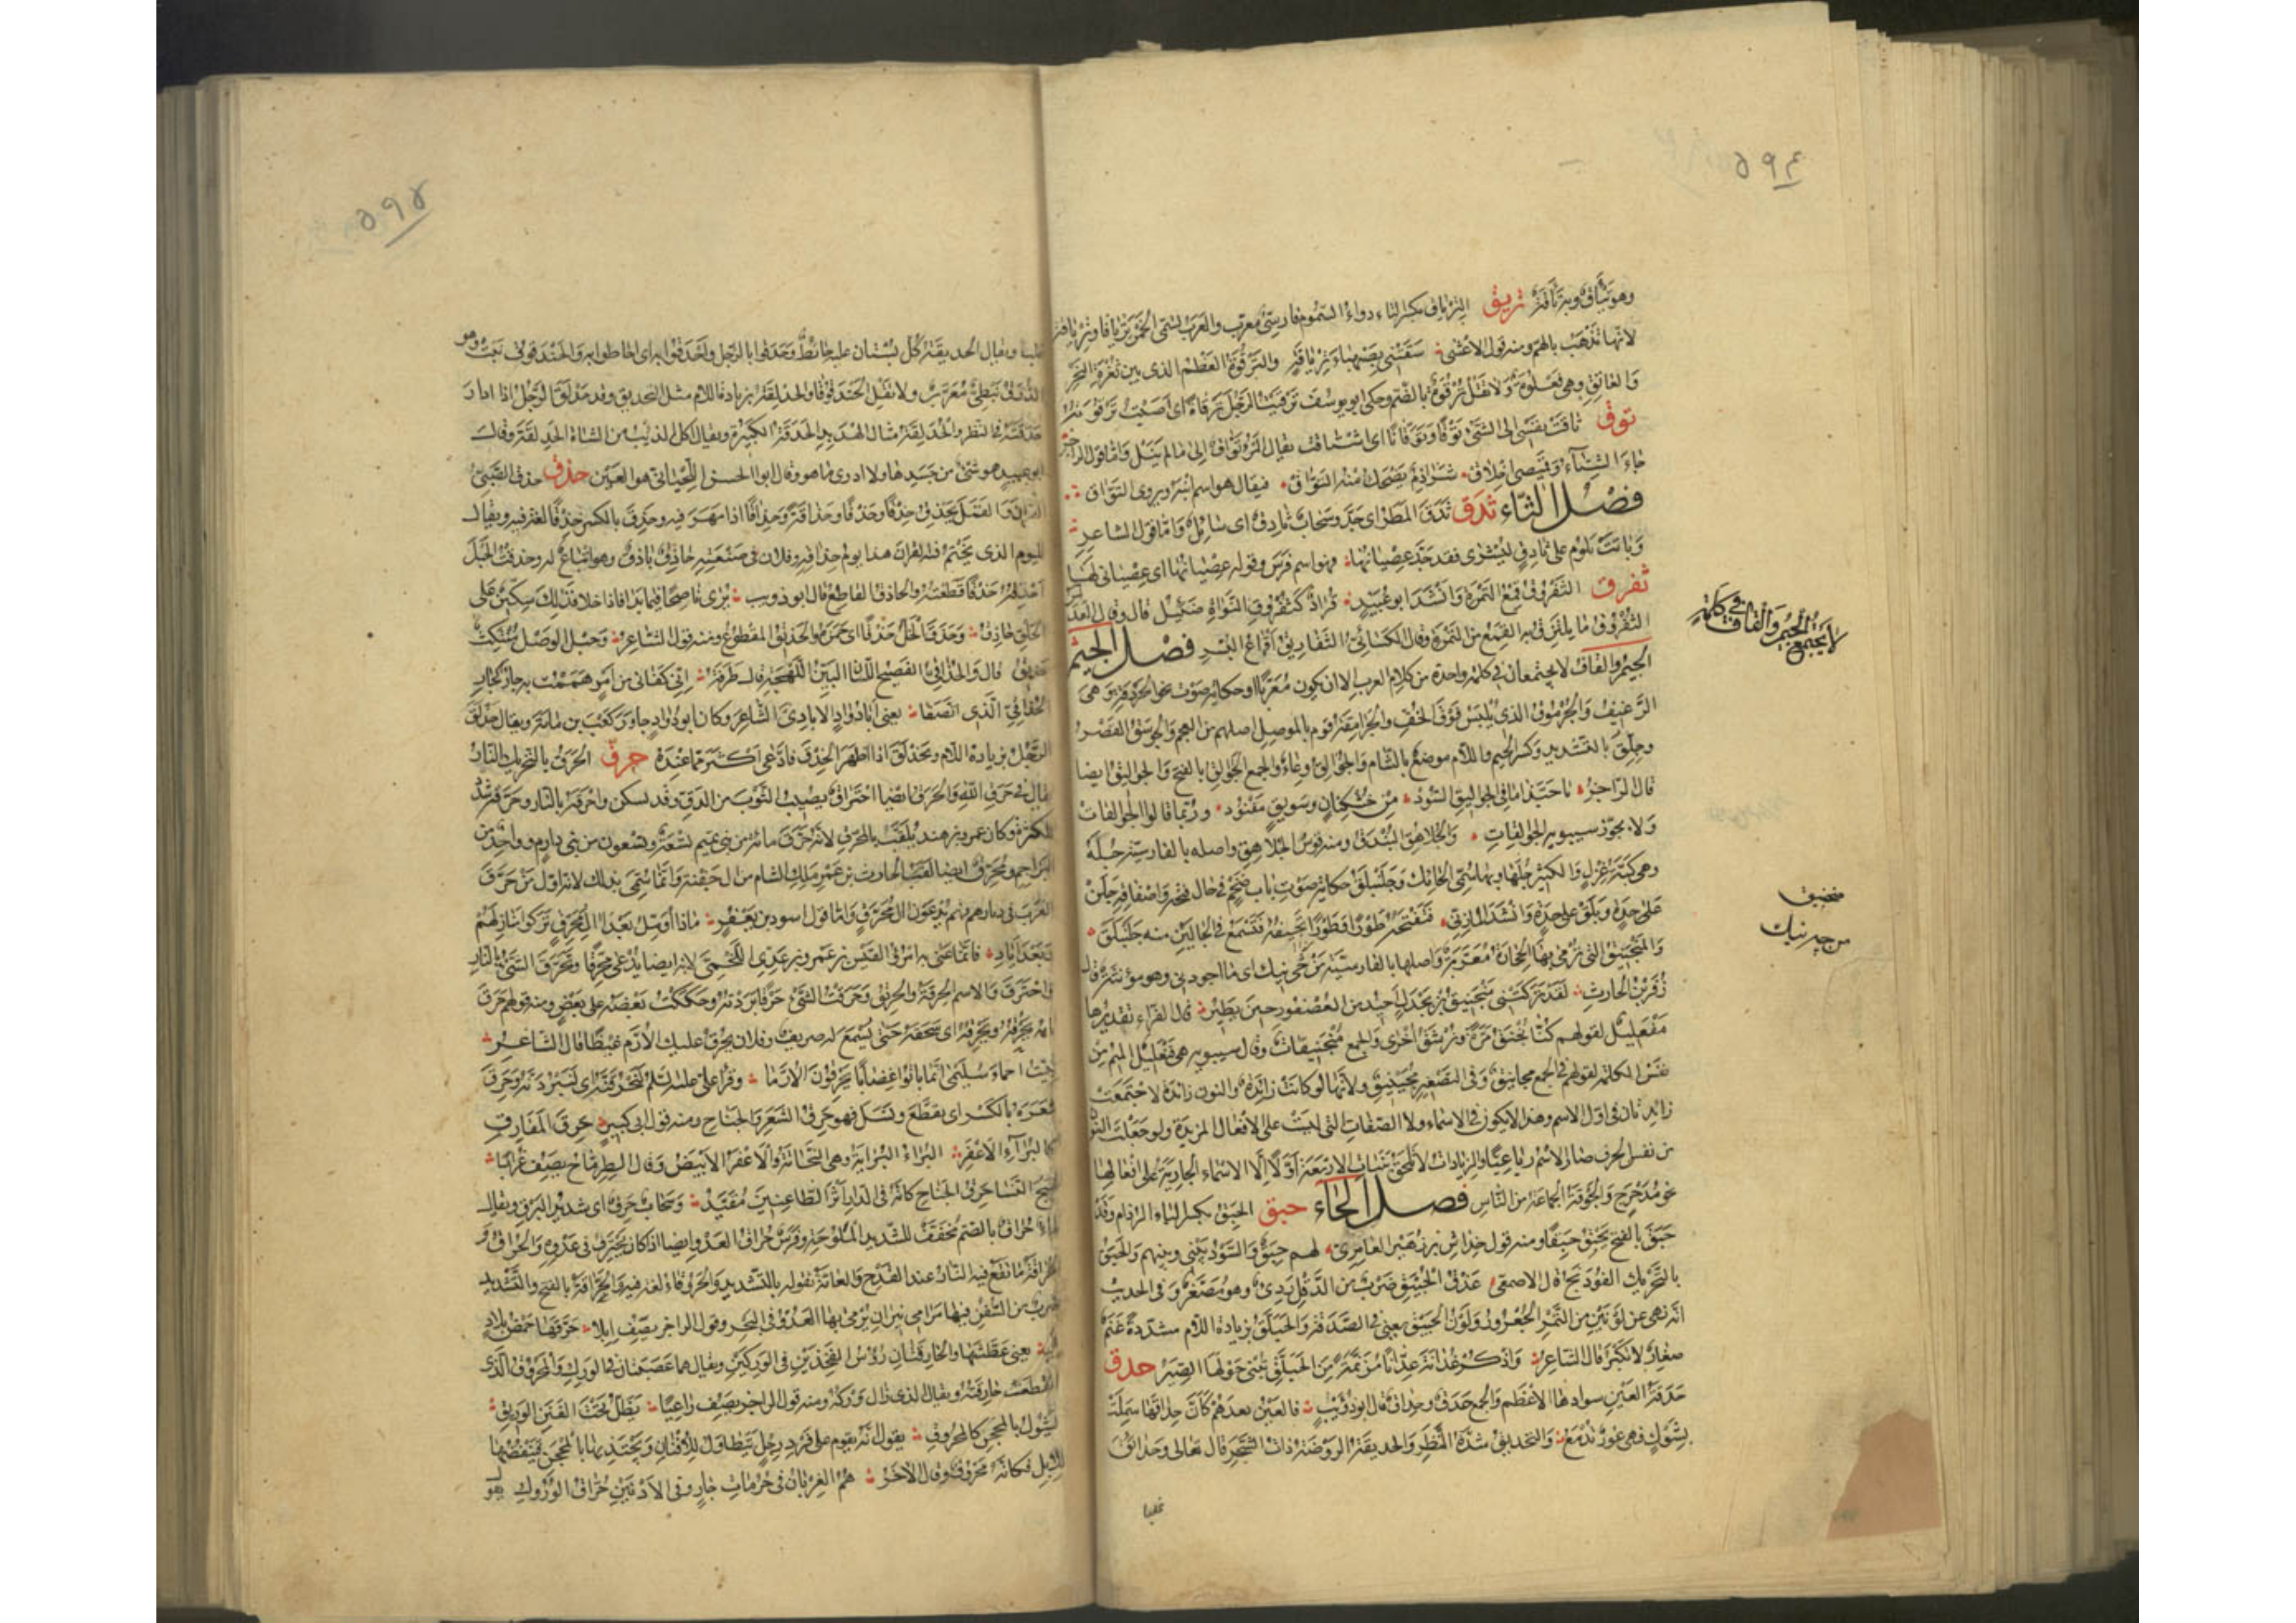 ٥٩٤
وهو تئاق وبه تأقة تريق الترياق بكسر التاء دواء السموم فارسى معرب والعرب تسمى الخمر ترياقا وترياقة
لانها تذهب بالهم ومنه قول الاعشى سقتنى بصهباء ترياقة والترقوة العظم الذى بين ثغرة النحر
والعاتق وهى فعلوة ولا تقل ترقوة بالضم وحكى ابو يوسف ترقيت الرجل ترقاة اى اصبت ترقوته
توق تاقت نفسى الى الشئ توقا وتوقانا اى اشتاقت يقال المرء تواق الى ما لم ينل واما قول الراجز
جاء الشتاء وقميصى اخلاق شراذم يضحك منه التواق فيقال هو اسم ابنه ويروى النواق
فصل الثاء ثدق ثدق المطر اى جد وسحاب ثادق اى سائل واما قول الشاعر
وباتت تلوم على ثادق ليشرى فقد جد عصيانها فهو اسم فرس وقوله عصيانها اى عصيانى لها
ثفرق الثفروق قمع التمرة وانشد ابو عبيد قراد كثفروق النواة ضئيل قال وقال العدبس
الثفروق ما يلتزق به القمع من التمرة وقال الكسائى الثفاريق اقماع البسر فصل الجيم
الجيم والقاف لا يجتمعان فى كلمة واحدة من كلام العرب الا ان يكون معربا او حكاية صوت نحو الجردقة وهى
الرغيف والجرموق الذى يلبس فوق الخف والجرامقة قوم بالموصل اصلهم من العجم والجوسق القصر
وجلق بالتشديد وكسر الجيم واللام موضع بالشام والجوالق وعاء والجمع الجوالق بالفتح والجواليق ايضا
قال الراجز يا حبذا ما فى الجواليق السود من خشكنان وسويق مقنود وربما قالوا الجوالقات
ولا يجوز سيبويه الجوالقات والجلاهق البندق ومنه قوس الجلاهق واصله بالفارسية جله
وهى كبة غزل والكثير جلها وبها سمى الحائك وجلنبلق حكاية صوت باب ضخم فى حال فتحه واصفاقه جلن
على حدة وبلق على حدة وانشد المازنى فتفتحه طورا وطورا تجيفه فتسمع فى الحالين منه جلنبلق
والمنجنيق التى ترمى بها الحجارة معربة واصلها بالفارسية من جى نيك اى ما اجودنى وهو مؤنثة قال
زفر بن الحارث لقد تركتنى منجنيق بن بجدل احيد من العصفور حين يطير قال الفراء تقديرها
مفعليل لقولهم كنا نجنق مرة ونرشق اخرى والجمع منجنيقات وقال سيبويه هى فنعليل الميم من
نفس الكلمة لقولهم فى الجمع مجانيق وفى التصغير مجينيق ولانها لو كانت زائدة والنون زائدة لاجتمعت
زائدتان فى اول الاسم وهذا لا يكون فى الاسماء ولا الصفات التى ليست على الافعال المزيدة ولو جعلت النون
من نفس الحرف صار الاسم رباعيا والزيادات لا تلحق بنبات الاربعة اولا الا الاسماء الجارية على افعالها
نحو مدحرج والجوقة الجماعة من الناس فصل الحاء حبق الحبق بكسر الباء الردام وقد
حبق بالفتح يحبق حبقا ومنه قول خداش بن زهير العامرى لهم حبق والسود بينى وبينهم والحبق
بالتحريك الفوذنج قال الاصمعى عذق الحبيق ضرب من الدقل ردى وهو مصغر وفى الحديث
انه نهى عن لونين من التمر الجعرور ولون الحبيق يعنى فى الصدقة والحبلق بزيادة اللام مشددة غنم
صغار لا تكبر قال الشاعر واذكر غدانة عدانا مزنمة من الحبلق تبنى حولها الصير حدق
حدقة العين سوادها الاعظم والجمع حدق وحداق قال ابو ذؤيب فالعين بعدهم كأن حداقها سملت
بشوك فهى عور تدمع والتحديق شدة النظر والحديقة الروضة ذات الشجر قال تعالى وحدائق
غلبا
لا يجتمع الجيم والقاف فى كلمة
منجنيق
من جه نيك
٥٩٥
غلبا ويقال الحديقة كل بستان عليه حائط وحدقوا بالرجل واحدقوا به اى احاطوا به والحندقوق نبت وهو
الذرق نبطى معرب ولا تقل الحندقوقا والحدلقة بزيادة اللام مثل التحديق وقد حدلق الرجل اذا ادار
حدقته فى النظر والحدلقة مثال الهدبد الحدقة الكبيرة ويقال اكل الذئب من الشاة الحدلقة وقال
ابو عبيد هو شئ من جسدها ولا ادرى ما هو وقال ابو الحسن اللحيانى هو العين حذق حذق الصبى
القرآن والعمل يحذق حذقا وحذقا وحذاقة وحذاقا اذا مهر فيه وحذق بالكسر حذقا لغة فيه ويقال
لليوم الذى يختم فيه القرآن هذا يوم حذاقه وفلان فى صنعته حاذق باذق وهو اتباع له وحذقت الحبل
احذقه حذقا قطعته والحاذق القاطع قال ابو ذويب يرى ناصحا فيما بدا فاذا خلا فذلك سكين على
الحلق حاذق وحذق الخل حذوقا اى حمض والحذيق المقطوع ومنه قول الشاعر وحبل الوصل منتكث
حذيق قال والحذاقى الفصيح اللسان البين اللهجة قال طرفة انى كفانى من امر هممت به جار كجار
الحذاقى الذى اتصفا يعنى ابا دواد الايادى الشاعر وكان ابو دواد جاور كعب بن مامة ويقال حذلق
الرجل بزيادة اللام وتحذلق اذا اظهر الحذق فادعى اكثر مما عنده حرق الحرق بالتحريك النار
يقال فى حرق الله والحرق ايضا احتراق يصيب الثوب من الدق وقد يسكن واحرقه بالنار وحرقه شدد
للكثرة وكان عمرو بن هند يلقب بالمحرق لانه حرق مائة من بنى تميم تسعة وتسعون من بنى دارم وواحد من
البراجم ومحرق ايضا لقب الحارث بن عمرو ملك الشام من ال جفنة وانما سمى بذلك لانه اول من حرق
العرب فى ديارهم فهم يدعون ال محرق واما قول اسود بن يعفر ماذا اؤمل بعد ال محرق تركوا منازلهم
وبعد اياد فانما عنى به امرئ القيس بن عمرو بن عدى اللخمى لانه ايضا يدعى محرقا وتحرق الشئ بالنار
واحترق والاسم الحرقة والحريق وحرقت الشئ حرقا بردته وحككت بعضه على بعض ومنه قولهم حرق
نابه يحرقه ويحرقه اى سحقه حتى يسمع له صريف وفلان يحرق عليك الارم غيظا قال الشاعر
نبئت احماء سليمى انما باتوا غضابا يحرقون الارما وقرأ على عليه السلم لنحرقنه اى لنبردنه وحرق
شعره بالكسر اى تقطع ونسل فهو حرق الشعر والجناح ومنه قول ابى كبير حرق المفارق
كالبراء الاعفر البراء البراية وهى النحاتة والاعفر الابيض وقال الطرماح يصف غرابا
شنج النسا حرق الجناح كأنه فى الدار اثر الظاعنين مقيد وسحاب حرق اى شديد البرق ويقال
ماء حراق بالضم مخفف للشديد الملوحة وفرس حراق العدو ايضا اذا كان يحترق فى عدوه والحراق و
الحراقة ما تقع فيه النار عند القدح والعامة تقوله بالتشديد والحروقاء لغة فيه والحراقة بالفتح والتشديد
ضرب من السفن فيها مرامى نيران يرمى بها العدو فى البحر وقول الراجز يصف ابلا حرقها حمض بلاد
فل يعنى عطشها والحارقتان رؤس الفخذين فى الوركين ويقال هما عصبتان فى الورك والمحروق الذى
انقطعت حارقته ويقال الذى زال وركه ومنه قول الراجز يصف راعيا يظل تحت الفنن الوريق
يشول بالمحجن كالمحروق يقول انه يقوم على فرد رجل يتطاول للافنان ويجتذبها بالمحجن فينفضها
للابل فكانه محروق وقال الاخر هم الغربان فى حرمات جار وفى الادنين حراق الوروك يقو